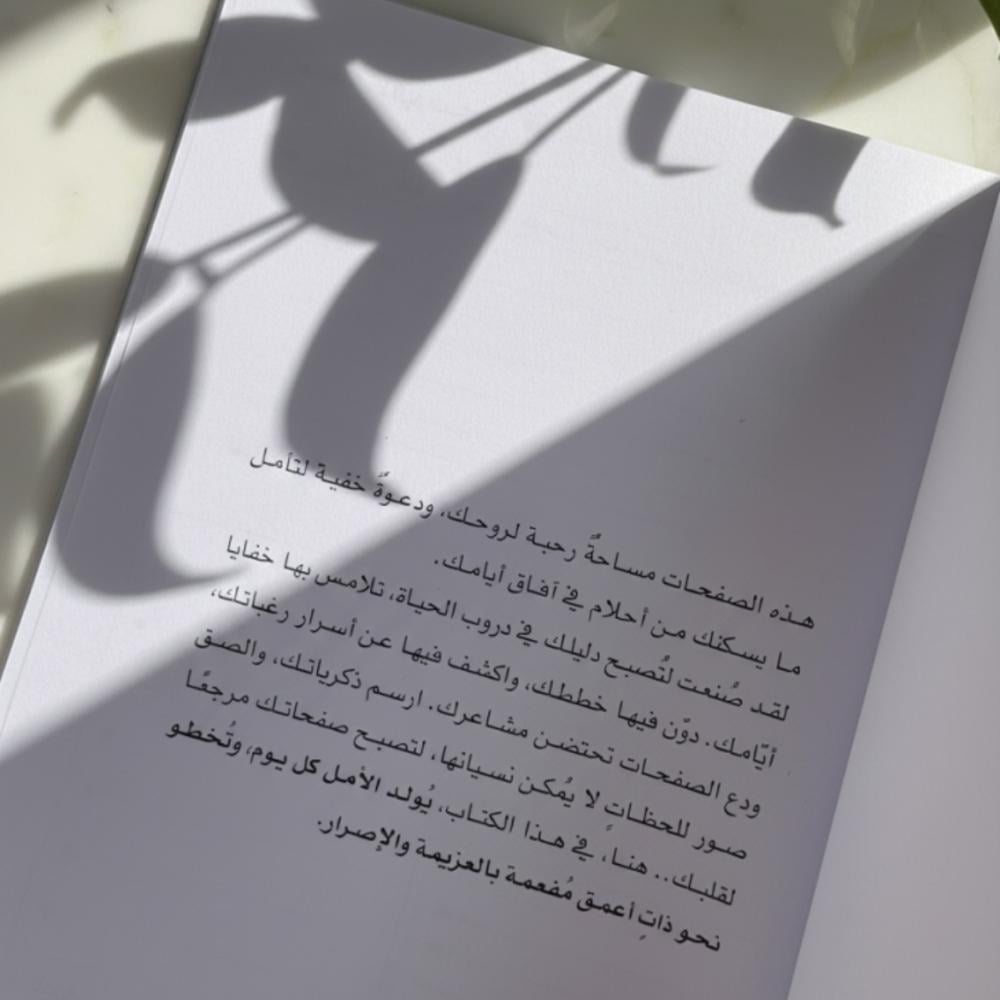 هذه الصفحات مساحةٌ رحبة لروحك، ودعوةٌ خفية لتأمل
ما يسكنك من أحلام في آفاق أيامك.
لقد صُنعت لتُصبح دليلك في دروب الحياة، تلامس بها خفايا
أيّامك. دوّن فيها خططك، واكشف فيها عن أسرار رغباتك،
ودع الصفحات تحتضن مشاعرك. ارسم ذكرياتك، والصق
صور للحظاتٍ لا يُمكن نسيانها، لتصبح صفحاتك مرجعًا
لقلبك.. هنا، في هذا الكتاب، يُولد الأمل كل يوم، وتُخطو
نحو ذاتٍ أعمق مُفعمة بالعزيمة والإصرار.